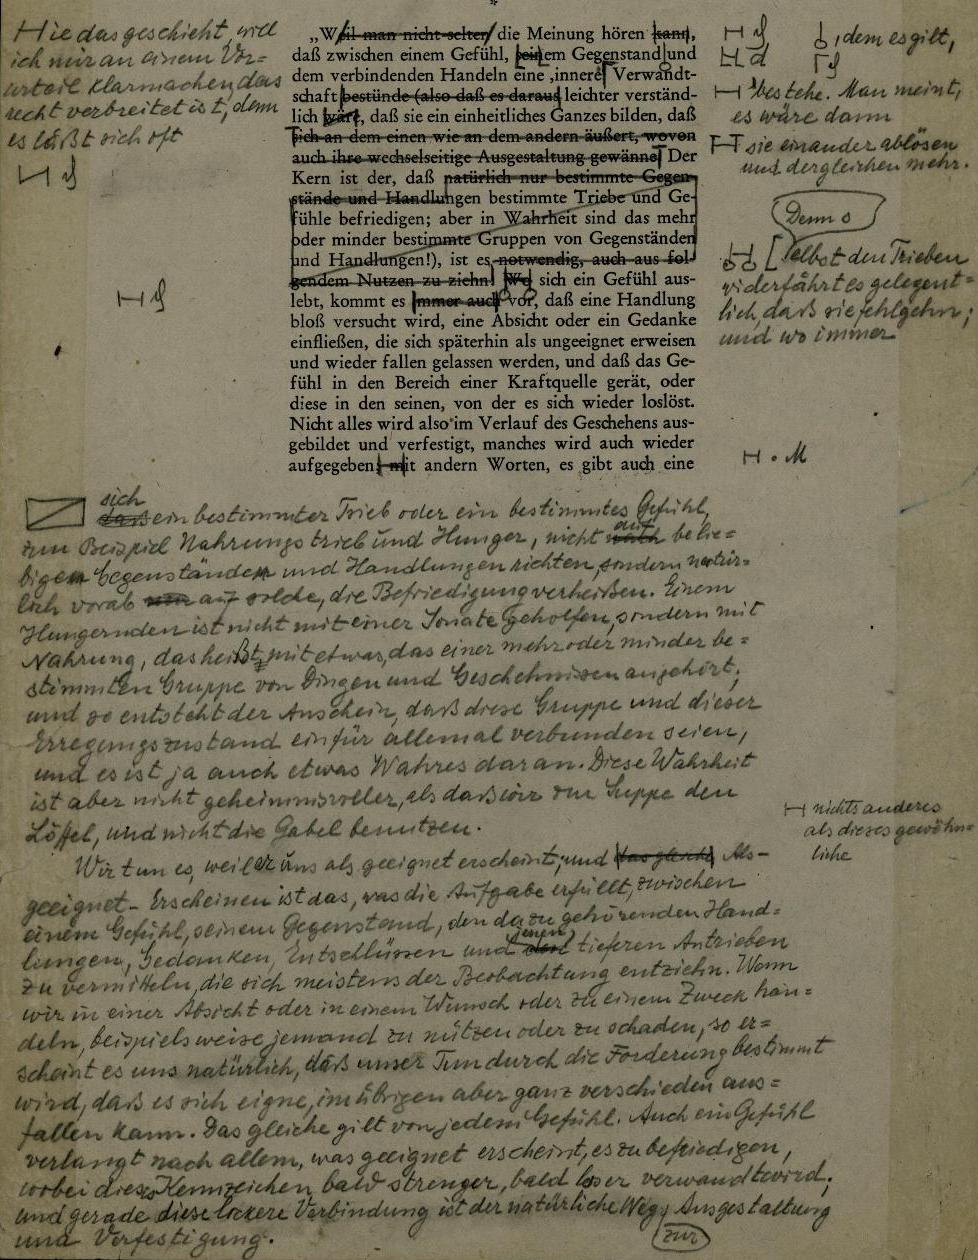 *
Wie das geschieht, will
ich mir an einem Vor=
urteil klarmachen, das
recht verbreitet ist, denn
es läßt sich oft
„Weil man nicht selten die Meinung hören kann,
daß zwischen einem Gefühl, seinem Gegenstand und
dem verbindenden Handeln eine ‚innere‘ Verwandt-
schaft bestünde (also daß es daraus leichter verständ-
lich wäre, daß sie ein einheitliches Ganzes bilden, daß
sich an dem einen wie an dem andern äußert, wovon
auch ihre wechselseitige Ausgestaltung gewänne Der
Kern ist der, daß natürlich nur bestimmte Gegen-
stände und Handlungen bestimmte Triebe und Ge-
fühle befriedigen; aber in Wahrheit sind das mehr
oder minder bestimmte Gruppen von Gegenständen
und Handlungen!), ist es notwendig, auch aus fol-
gendem Nutzen zu ziehn! Wo sich ein Gefühl aus-
lebt, kommt es immer auch vor, daß eine Handlung
bloß versucht wird, eine Absicht oder ein Gedanke
einfließen, die sich späterhin als ungeeignet erweisen
und wieder fallen gelassen werden, und daß das Ge-
fühl in den Bereich einer Kraftquelle gerät, oder
diese in den seinen, von der es sich wieder loslöst.
Nicht alles wird also im Verlauf des Geschehens aus-
gebildet und verfestigt, manches wird auch wieder
aufgegeben, mit andern Worten, es gibt auch eine
, dem es gilt,
bestehe. Man meint,
es wäre dann
sie einander ablösen
und dergleichen mehr.
Denn s
Selbst den Trieben
widerfährt es gelegent=
lich, daß sie fehlgehn;
und wo immer
M
sich
daß ein bestimmter Trieb oder ein bestimmtes Gefühl,
auf
zum Beispiel Nahrungstrieb und Hunger, nicht nach belie=
bigen Gegenständen und Handlungen richten, sondern natür=
lich vorab auf solche, die Befriedigung verheißen. Einem
Hungernden ist nicht mit einer Sonate geholfen, sondern mit
Nahrung, das heißt, mit etwas, das einer mehr oder minder be=
stimmten Gruppe von Dingen und Geschehnissen angehört;
und so entsteht der Anschein, daß diese Gruppe und dieser
Erregungszustand ein für allemal verbunden seien,
und es ist ja auch etwas Wahres daran. Diese Wahrheit
ist aber nicht geheimnisvoller, als daß wir zur Suppe den
Löffel, und nicht die Gabel benutzen.
nichts anderes
als dieses gewöhn=
liche
Wir tun es, weil er uns als geeignet erscheint; und das gleiche Als-
geeignet-Erscheinen ist das, was die Aufgabe erfüllt, zwischen
einem Gefühl, seinem Gegenstand, den dazu gehörenden Hand=
jenen
lungen, Gedanken, Entschlüssen und den tieferen Antrieben
zu vermitteln, die sich meistens der Beobachtung entziehn. Wenn
wir in einer Absicht oder in einem Wunsch oder zu einem Zweck han=
deln, beispielsweise jemand zu nützen oder zu schaden, so er=
scheint es uns natürlich, daß unser Tun durch die Forderung bestimmt
wird, daß es sich eigne, im übrigen aber ganz verschieden aus=
fallen kann. Das gleiche gilt von jedem Gefühl. Auch ein Gefühl
verlangt nach allem, was geeignet erscheint, es zu befriedigen,
wobei dies Kennzeichen bald strenger, bald loser verwandt wird;
und gerade diese lockere Verbindung ist der natürliche Weg Ausgestaltung
zur
und Verfestigung.